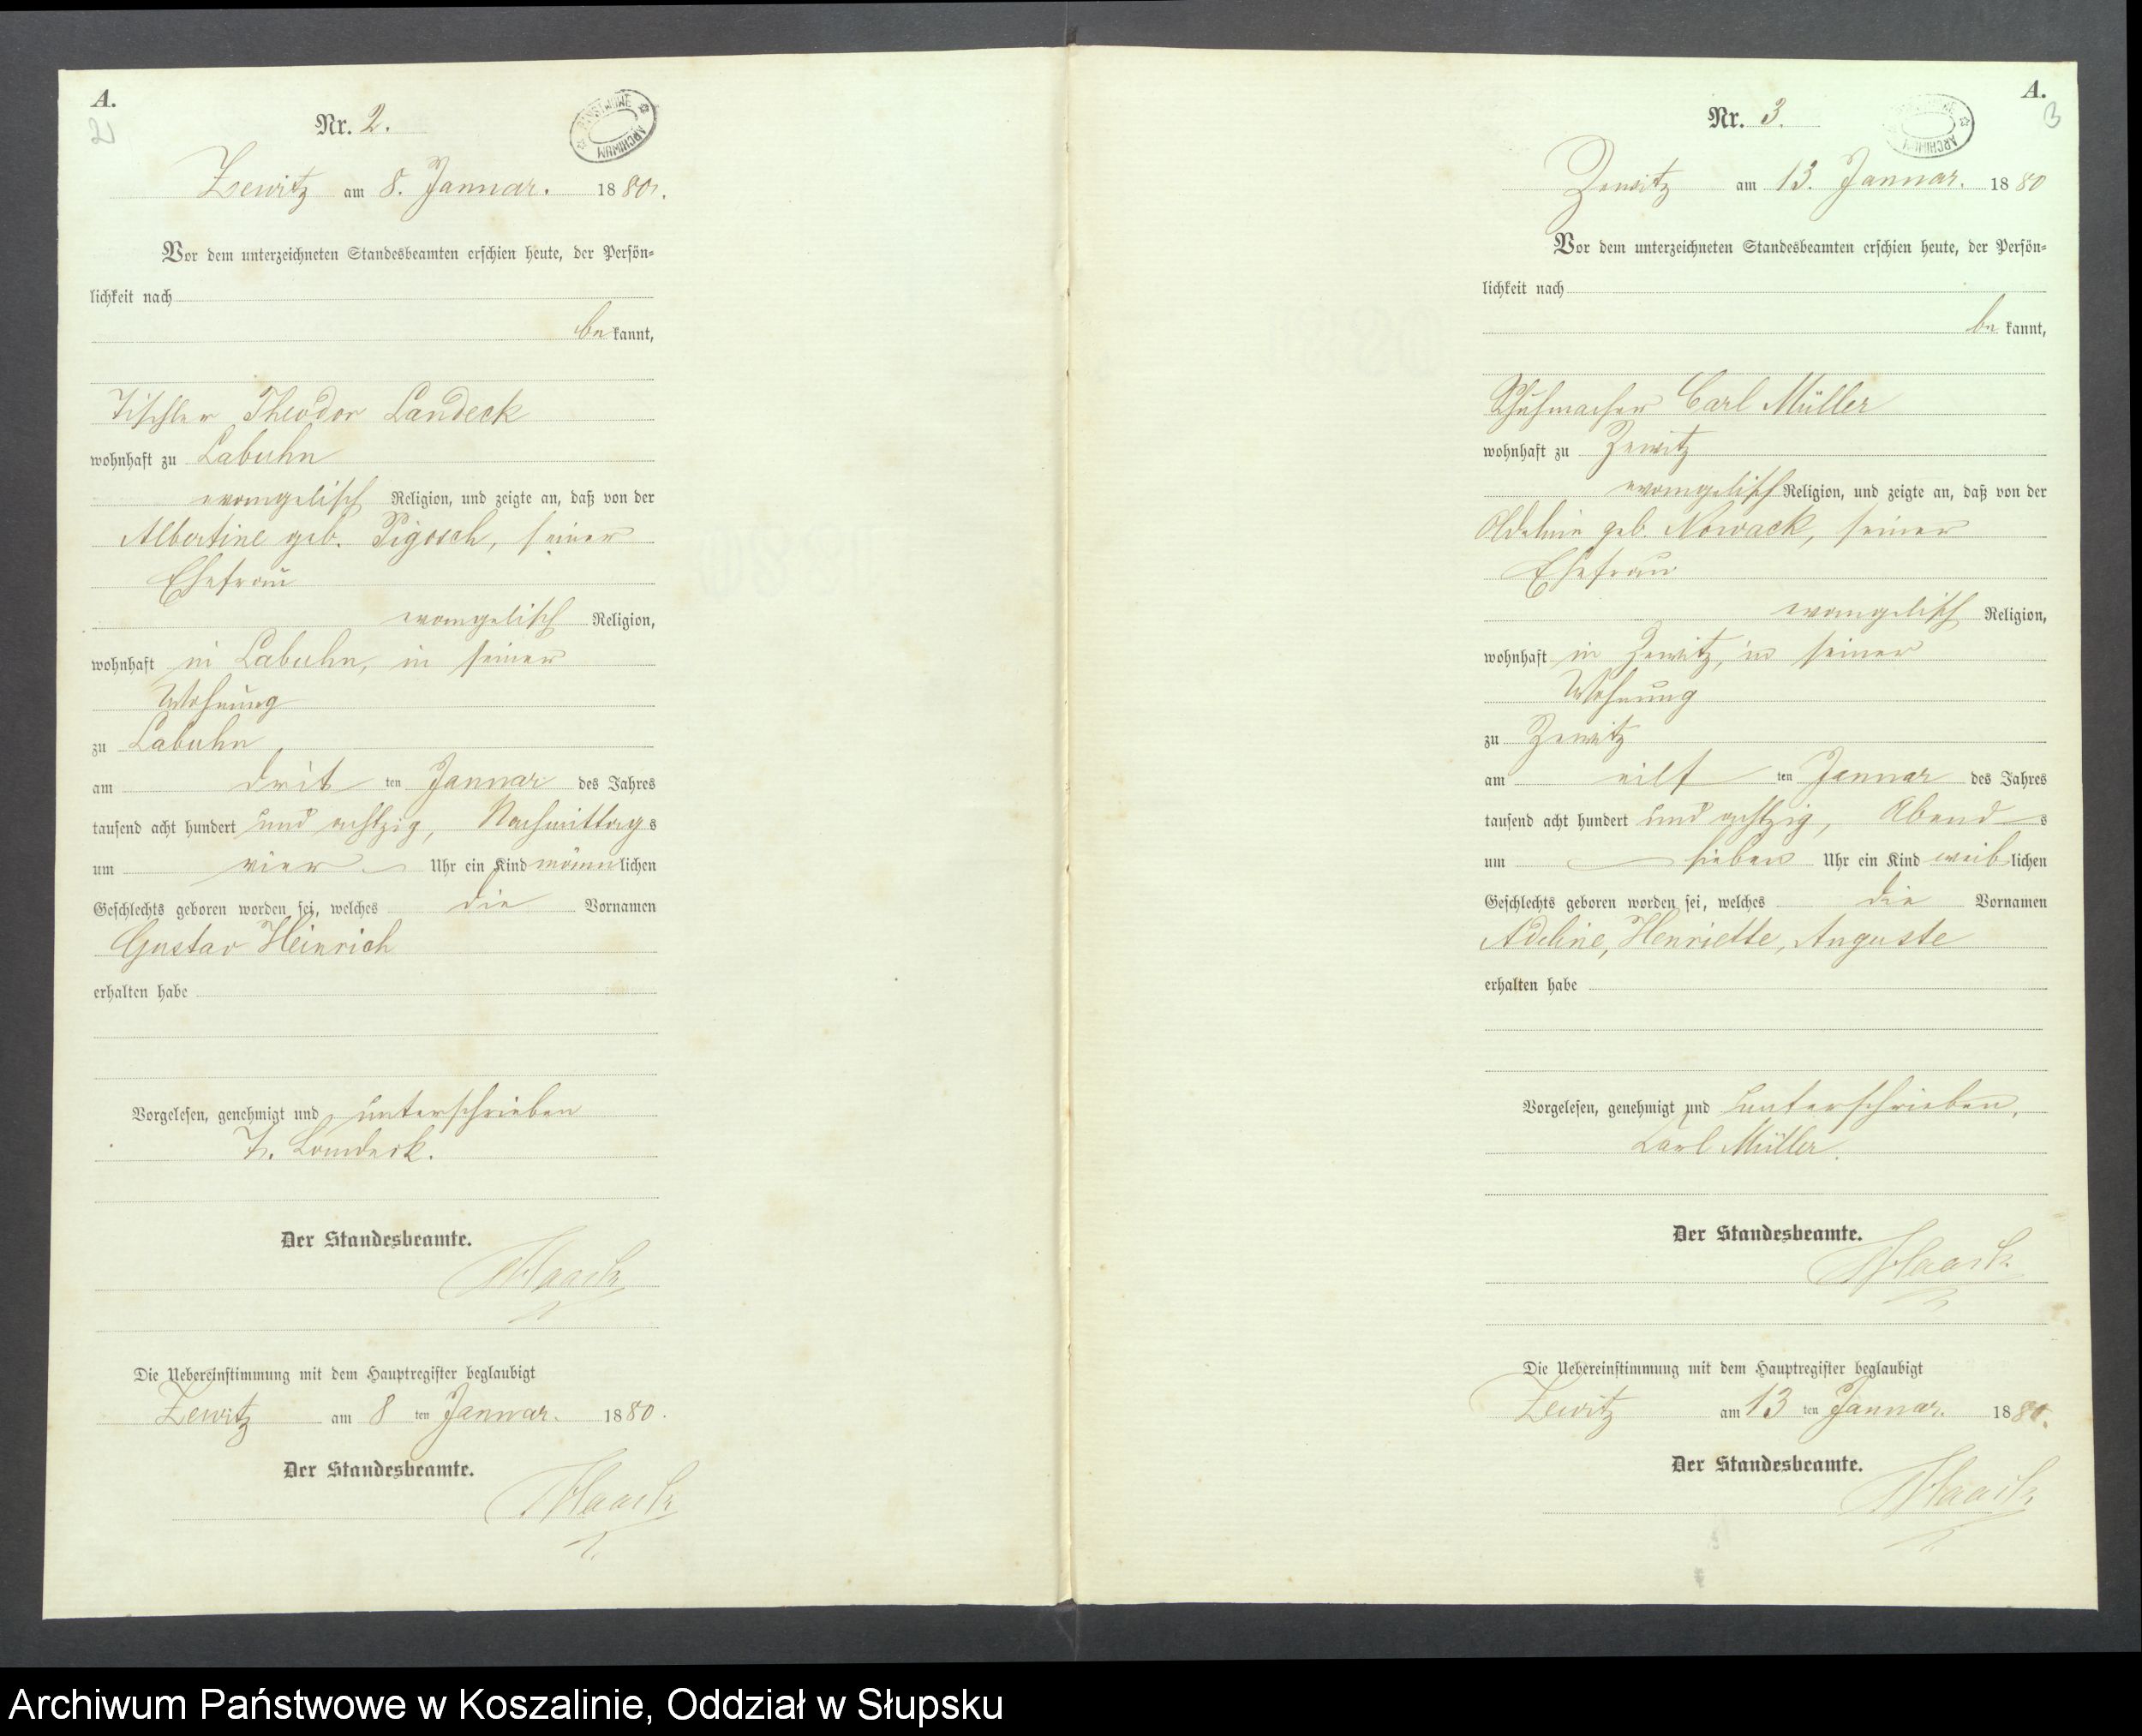 A.
2
Nr. 2.
ARCHIWUM
Zewitz am 8. Januar. 1880.
Vor dem unterzeichneten Standesbeamten erschien heute, der Persön-
lichkeit nach
be kannt,
Tischler Theodor Landeck
wohnhaft zu Labuhn
evangelisch Religion, und zeigte an, daß von der
Albertine geb. Pigosch, seiner
Ehefrau
evangelisch Religion,
wohnhaft in Labuhn, in seiner
Wohnung
zu Labuhn
am drit ten Januar des Jahres
tausend acht hundert und achtzig, Nachmittags
um vier Uhr ein Kind männlichen
Geschlechts geboren worden sei, welches die Vornamen
Gustav Heinrich
erhalten habe
Vorgelesen, genehmigt und unterschrieben
T. Landeck.
Der Standesbeamte.
Haack
Die Uebereinstimmung mit dem Hauptregister beglaubigt
Zewitz am 8 ten Januar. 1880.
Der Standesbeamte.
Haack
A.
3
Nr. 3.
ARCHIWUM
Zewitz am 13. Januar. 1880
Vor dem unterzeichneten Standesbeamten erschien heute, der Persön-
lichkeit nach
be kannt,
Schuhmacher Carl Müller
wohnhaft zu Zewitz
evangelisch Religion, und zeigte an, daß von der
geb. Nowack, seiner
Ehefrau
evangelisch Religion,
wohnhaft in Zewitz, in seiner
Wohnung
zu Zewitz
am eilf ten Januar des Jahres
tausend acht hundert und achtzig, Abends
um sieben Uhr ein Kind weiblichen
Geschlechts geboren worden sei, welches die Vornamen
Adeline, Henriette, Auguste
erhalten habe
Vorgelesen, genehmigt und unterschrieben.
Carl Müller.
Der Standesbeamte.
Haack
Die Uebereinstimmung mit dem Hauptregister beglaubigt
Zewitz am 13 ten Januar. 1880.
Der Standesbeamte.
Haack
Archiwum Państwowe w Koszalinie, Oddział w Słupsku